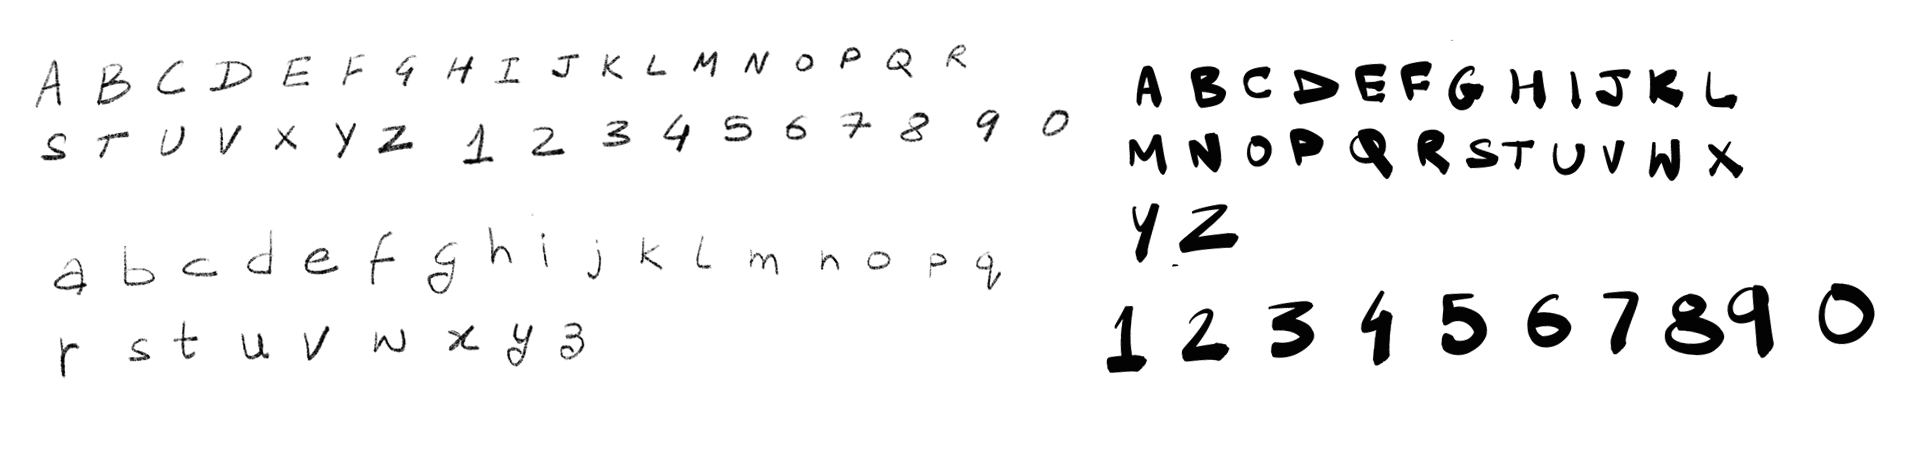 A B C D E F G H I J K L M N O P Q R
S T U V X Y Z 1 2 3 4 5 6 7 8 9 0
a b c d e f g h i j k l m n o p q
r s t u v w x y z
A B C D E F G H I J K L
M N O P Q R S T U V W X
Y Z
1 2 3 4 5 6 7 8 9 0